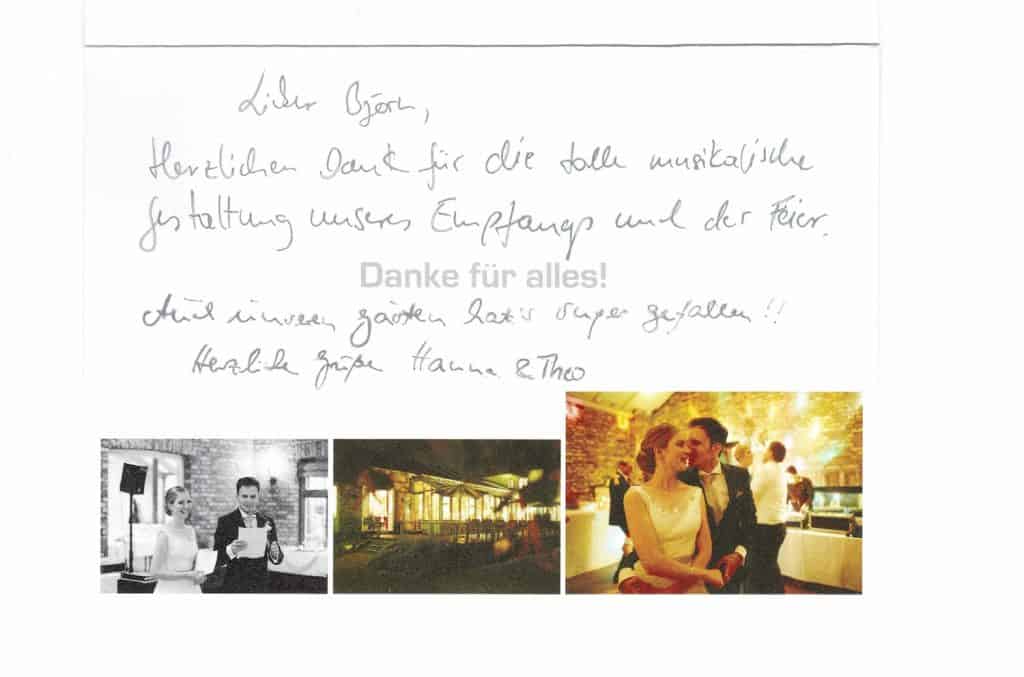 Lieber Björn,
Herzlichen Dank für die tolle musikalische
Gestaltung unseres Empfangs und der Feier.
Danke für alles!
Auch unseren Gästen hat's super gefallen!!
Herzliche Grüße Hanna & Theo